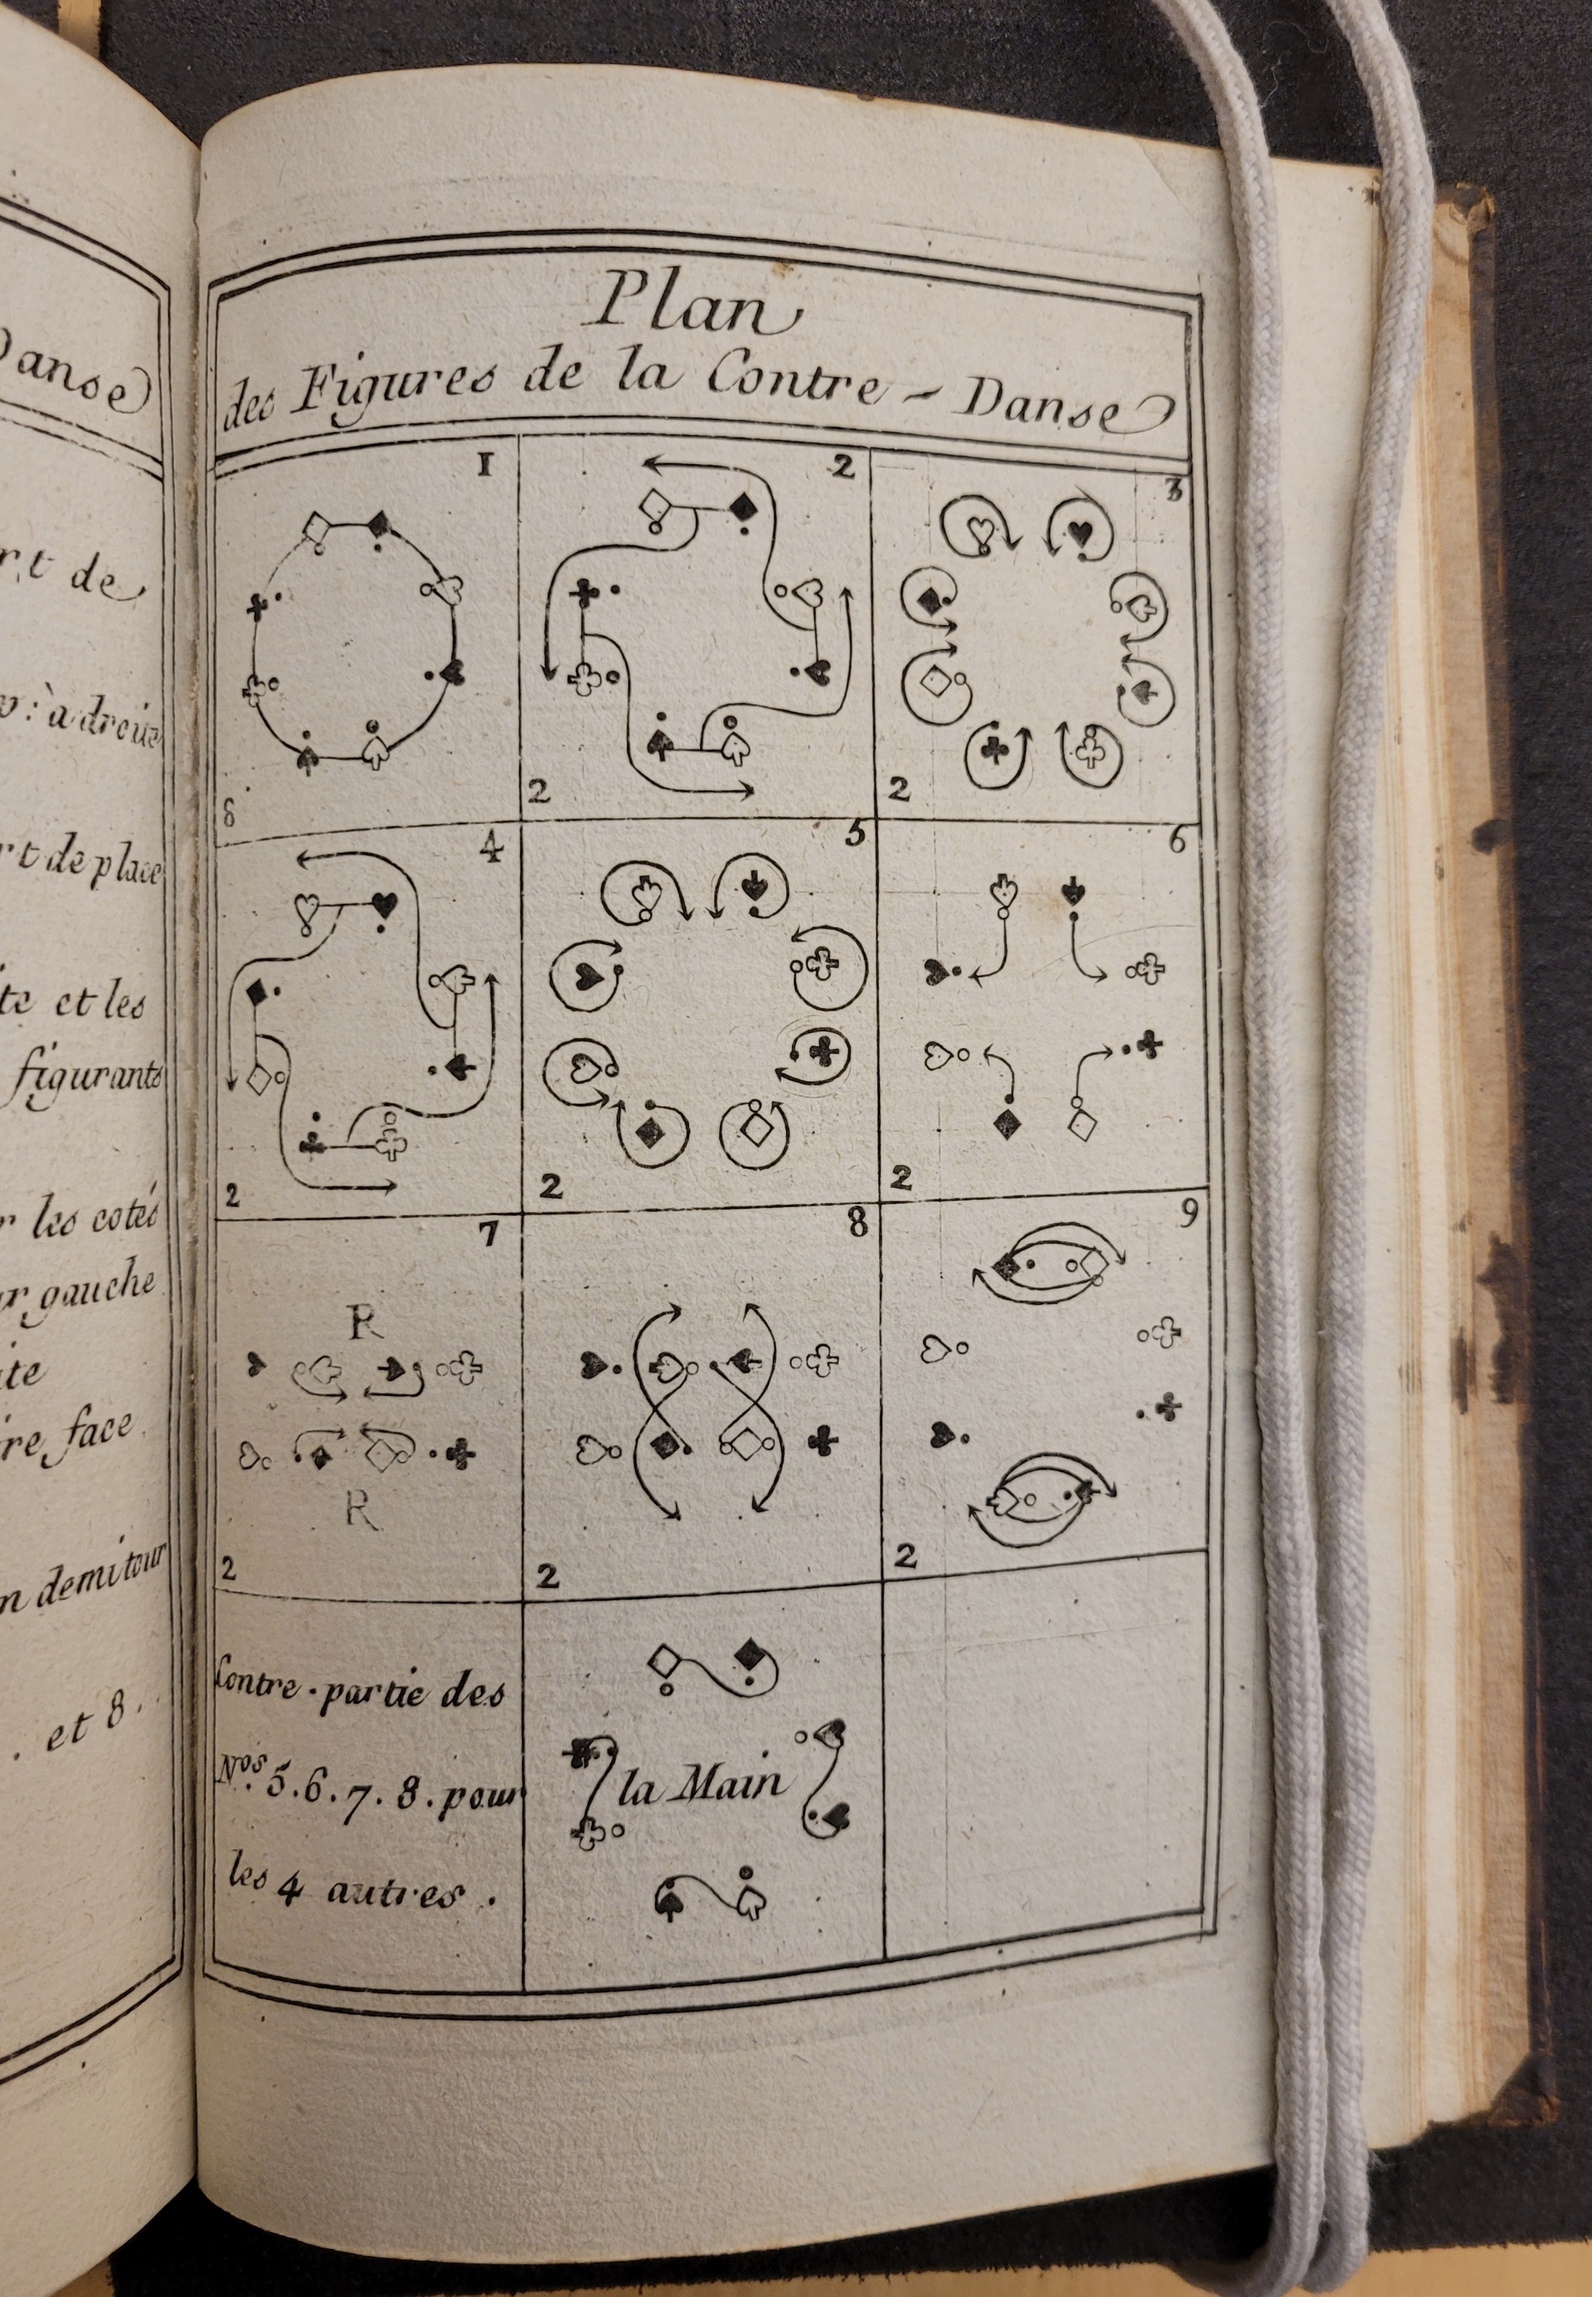 Danse
de
à droite
de place
et les
figurants
les cotés
gauche
face
demitour
et 8.
Plan
des Figures de la Contre - Danse
1
2
3
8
2
2
4
5
6
2
2
2
7
8
9
R
R
2
2
2
Contre-partie des
Nos. 5. 6. 7. 8. pour
les 4 autres.
la Main